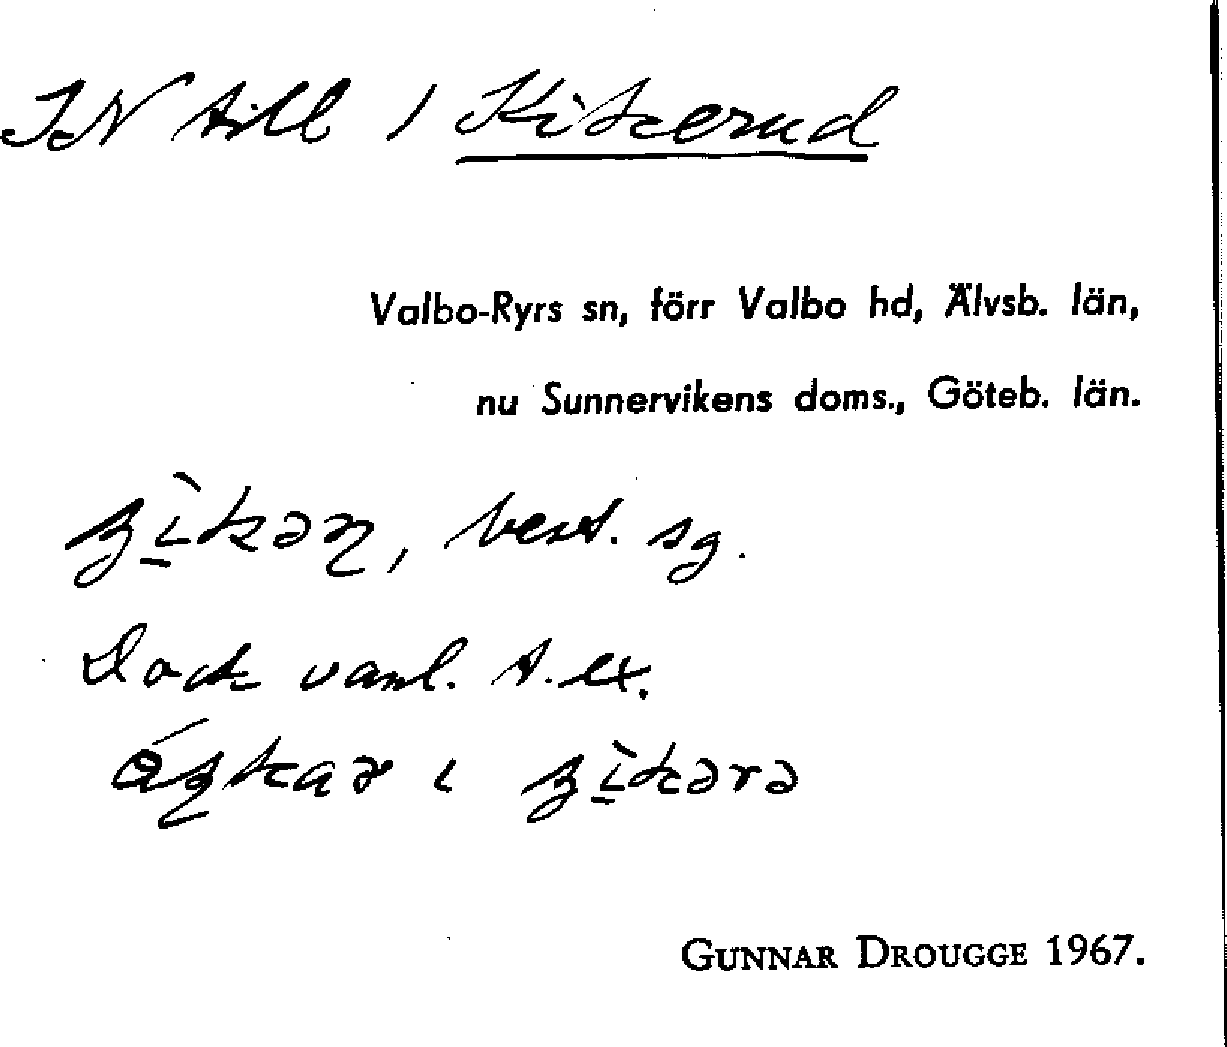 IN till 1 Kikerud
Valbo-Ryrs sn, förr Valbo hd, Älvsb. län,
nu Sunnervikens doms., Göteb. län.
best. sg.
Dock vanl. t. ex.
GUNNAR DROUGGE 1967.